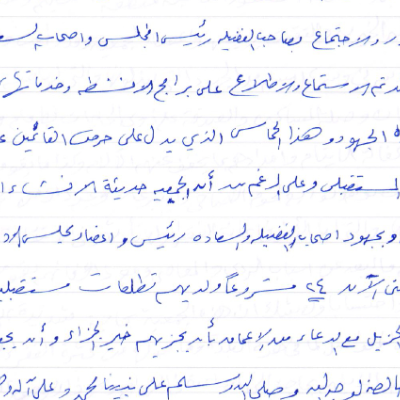 والاجتماع بصاحب الفضيلة رئيس المجلس واصحاب
تم الاستماع والاطلاع على برامج الانشطة وخدماتها
الجهود وهذا الحماس الذي يدل على حرص القائمين
المستقبل وعلى الرغم من أن الجمعية حديثة الانشاء
وبجهود اصحاب الفضيلة والسعادة رئيس واعضاء مجلس
الآن ٢٤ مشروعاً ولديهم تطلعات مستقبلية
الجزيل مع الدعاء من الاعماق بأن يجزيهم خير الجزاء وأن
لوجهه وصلى الله وسلم على نبينا محمد وعلى آله